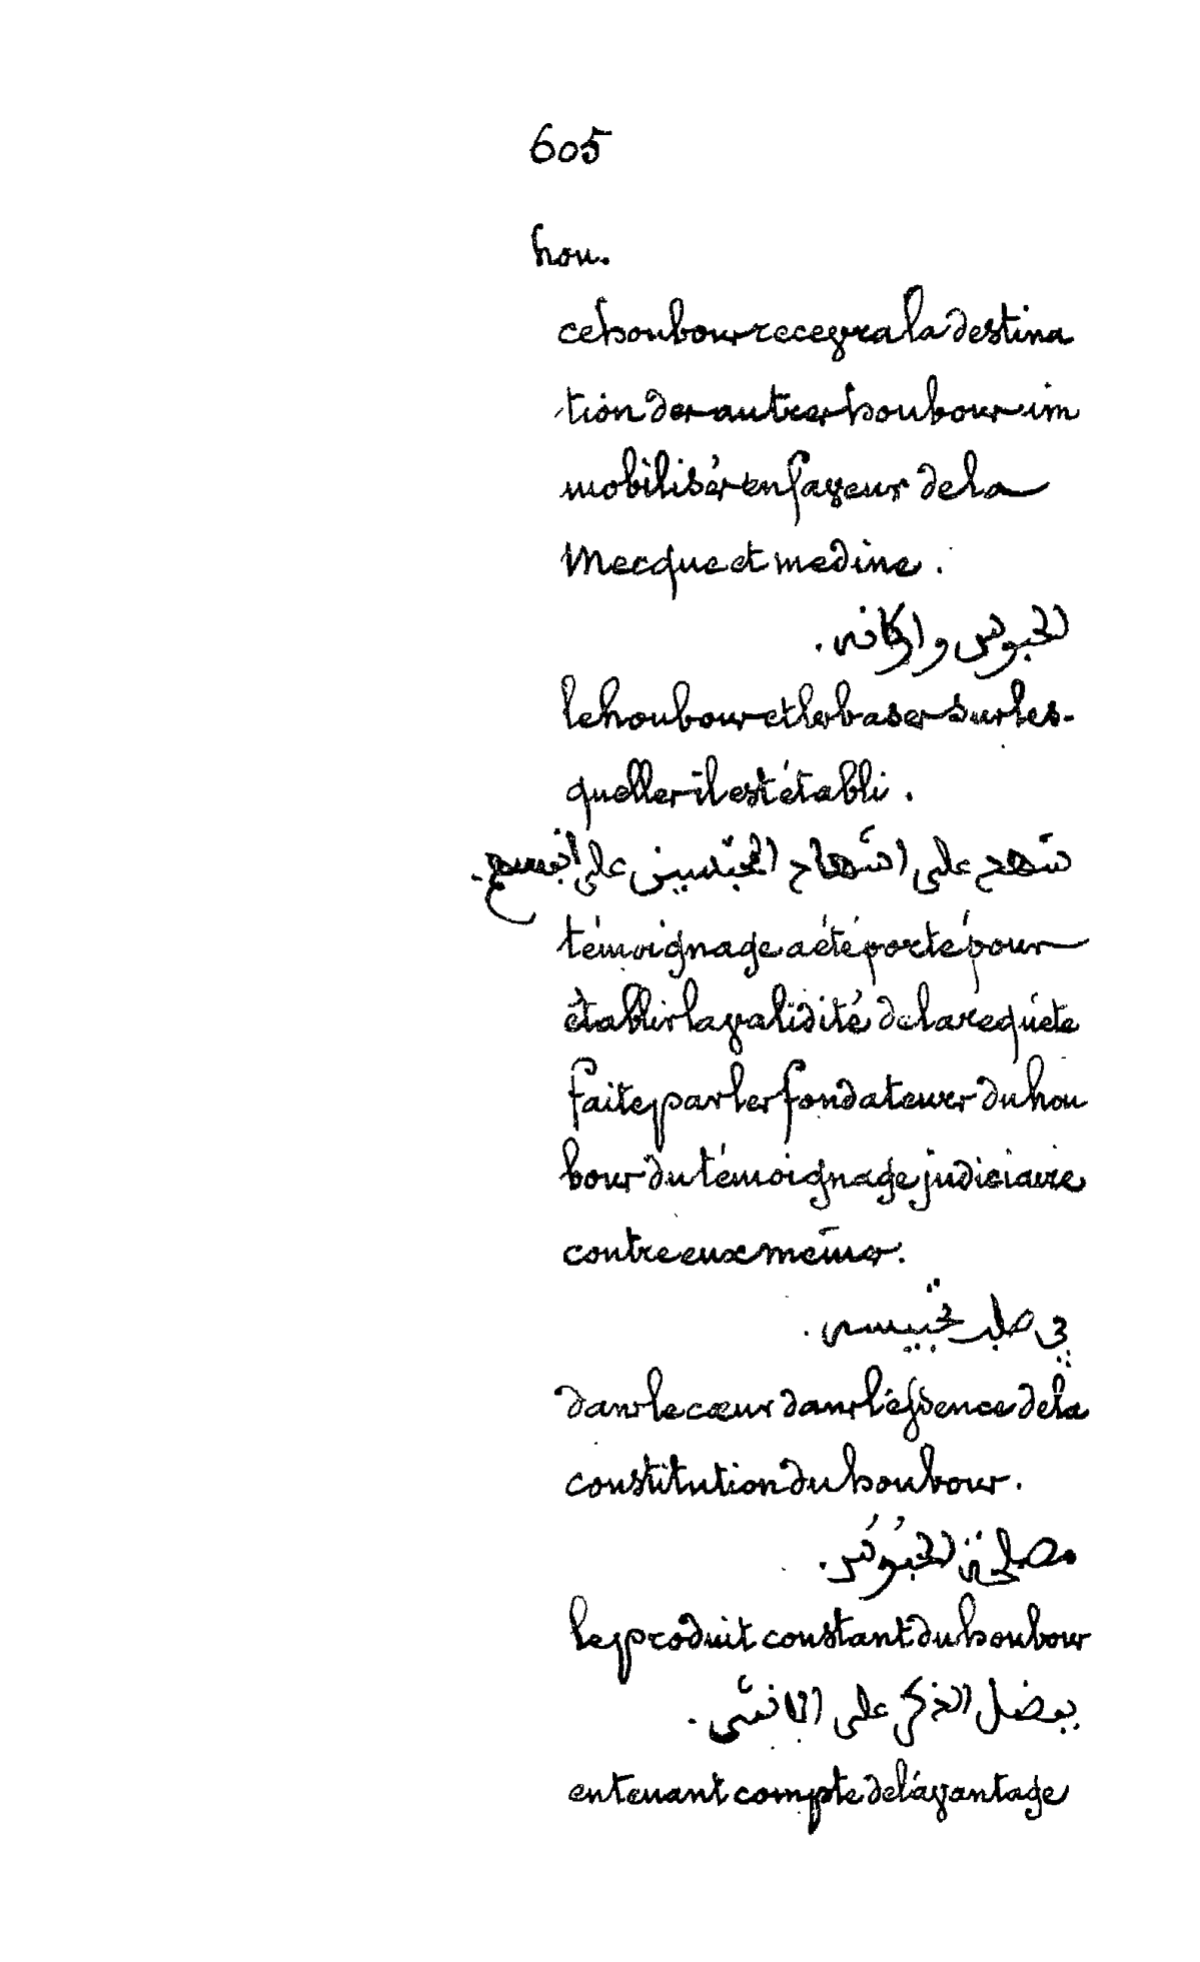 605
hou.
ce houbous recevra la destina
tion des autres houbous im
mobilisés en faveur de la
Mecque et medine.
الحبوس واركانه.
le houbous et les bases sur les-
quelles il est établi.
شهد على اشهاد المحبسين على انفسهم.
témoignage a été porté pour
établir la validité de la requéte
faite par les fondateurs du hou
bous du témoignage judiciaire
contre eux mêmes.
في صلب تحبيسه.
dans le cœur dans l'essence de la
constitution du houbous.
مصلحة الحبوس.
le produit constant du houbous
بفضل الذكر على الانثى.
en tenant compte de l'avantage